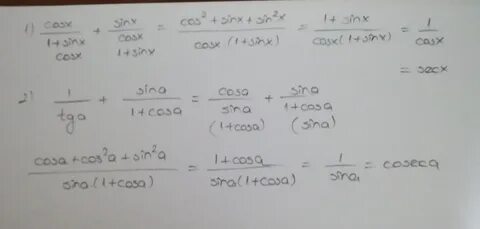 1) cosx/(1+sinx) + sinx/cosx = (cos² + sinx + sin²x)/(cosx (1+sinx)) = (1+sinx)/(cosx(1+sinx)) = 1/cosx
cosx 1+sinx
= secx
2) 1/tga + sina/(1+cosa) = cosa/sina + sina/(1+cosa)
(1+cosa) (sina)
(cosa+cos²a+sin²a)/(sina(1+cosa)) = (1+cosa)/(sina(1+cosa)) = 1/sina = coseca